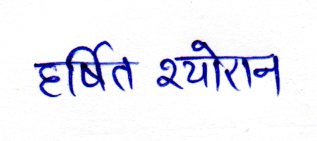 हर्षित श्योरान